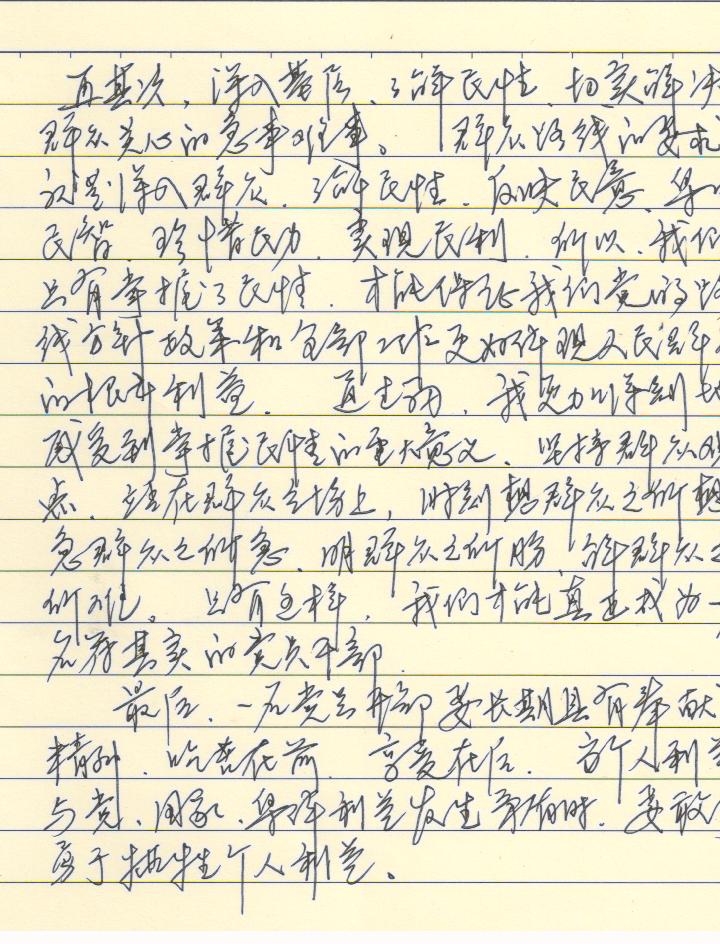 再其次，深入基层、了解民性，切实解决
群众关心的急事难事。群众路线的要求
就是深入群众、了解民性、反映民意、集中
民智、珍惜民力、实现民利，所以，我们
只有掌握了民性，才能保证我们党的路
线方针政策和全部工作更好体现人民群众
的根本利益。通过学习，我更加深刻地
感受到掌握民性的重大意义、坚持群众观
点、站在群众立场上，时刻想群众之所想
急群众之所急、明群众之所盼、解群众之
所难。只有这样，我们才能真正成为一
名符其实的党员干部
最后，一名党员干部要长期具有奉献
精神、吃苦在前、享受在后，当个人利益
与党、国家、集体利益发生矛盾时，要敢
勇于牺牲个人利益。